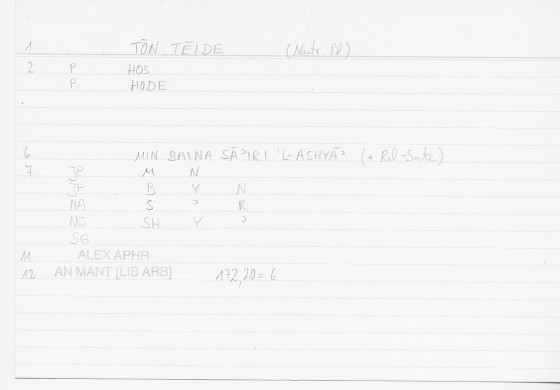 1 TŌN TĒIDE (Neutr Pl)
2 P HOS
P HODE
6 MIN BAINA SĀʾIRI ʾL-ASHYĀʾ (+ Rel-Satz)
7 JP M N
JP B Y N
NA S ʾ R
NC SH Y ʾ
SG
11 ALEX APHR
12 AN MANT [LIB ARB] 172,20 = 6